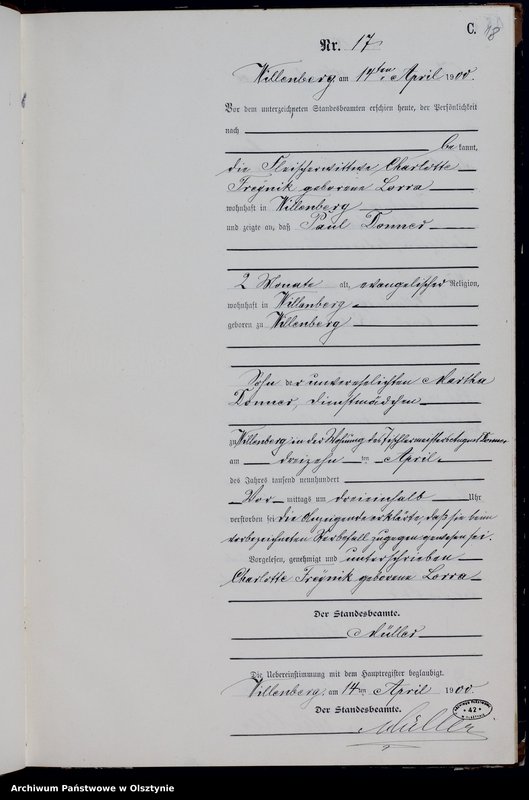 C.
18
Nr. 17
Willenberg am 14ten April 1900.
Vor dem unterzeichneten Standesbeamten erschien heute, der Persönlichkeit
nach
be kannt,
die Fleischerwittwe Charlotte
Treynik geborene Lorra
wohnhaft in Willenberg
und zeigte an, daß Paul Donner
2 Monate alt, evangelischer Religion,
wohnhaft in Willenberg
geboren zu Willenberg
Sohn der unverehelichten Martha
Donner, Dienstmädchen
zu Willenberg in der Wohnung des Tischlermeisters Donner
am dreizehn ten April
des Jahres tausend neunhundert
Vor mittags um dreieinhalb Uhr
verstorben sei die Anzeigende erklärte, daß sie beim
vorbezeichneten Sterbefall zugegen gewesen sei.
Vorgelesen, genehmigt und unterschrieben
Charlotte Treynik geborene Lorra
Der Standesbeamte.
Müller
Die Uebereinstimmung mit dem Hauptregister beglaubigt.
Willenberg, am 14ten April 1900.
Der Standesbeamte.
Müller
42
Archiwum Państwowe w Olsztynie